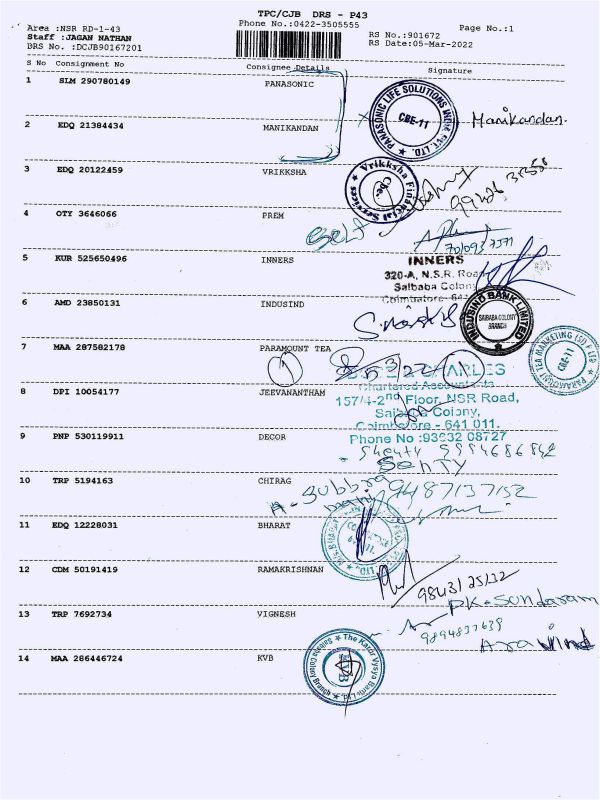 TPC/CJB DRS - P43
Area :NSR RD-1-43
Phone No.:0422-3505555
Page No.:1
Staff :JAGAN NATHAN
RS No.:901672
BRS No. :DCJB90167201
RS Date:05-Mar-2022
S No Consignment No Consignee Details Signature
1 SLM 290780149 PANASONIC
PANASONIC LIFE SOLUTIONS INDIA PVT. LTD.
CBE-11
Manikandan.
2 EDQ 21384434 MANIKANDAN
3 EDQ 20122459 VRIKKSHA
Vrikksha Financial Services
Cbe.
4 OTY 3646066 PREM
Self
5 KUR 525650496 INNERS
INNERS
320-A, N.S.R. Road
Saibaba Colony
Coimbatore - 641
6 AMD 23850131 INDUSIND
INDUSIND BANK LIMITED
SAIBABA COLONY
BRANCH
7 MAA 287582178 PARAMOUNT TEA
PARAMOUNT TEA MARKETING (SI) P LTD
CBE-11
8 DPI 10054177 JEEVANANTHAM
Chartered Accountants
157/4-2nd Floor, NSR Road,
Saibaba Colony,
Coimbatore - 641 011.
9 PNP 530119911 DECOR
Phone No :93632 08727
9994686842
10 TRP 5194163 CHIRAG
A-Subbra
9487137152
11 EDQ 12228031 BHARAT
12 CDM 50191419 RAMAKRISHNAN
9843125132
PK-Sundaram
13 TRP 7692734 VIGNESH
9894837639
Aravind
14 MAA 286446724 KVB
The Karur Vysya Bank Ltd
Saibaba Colony Branch
KVB